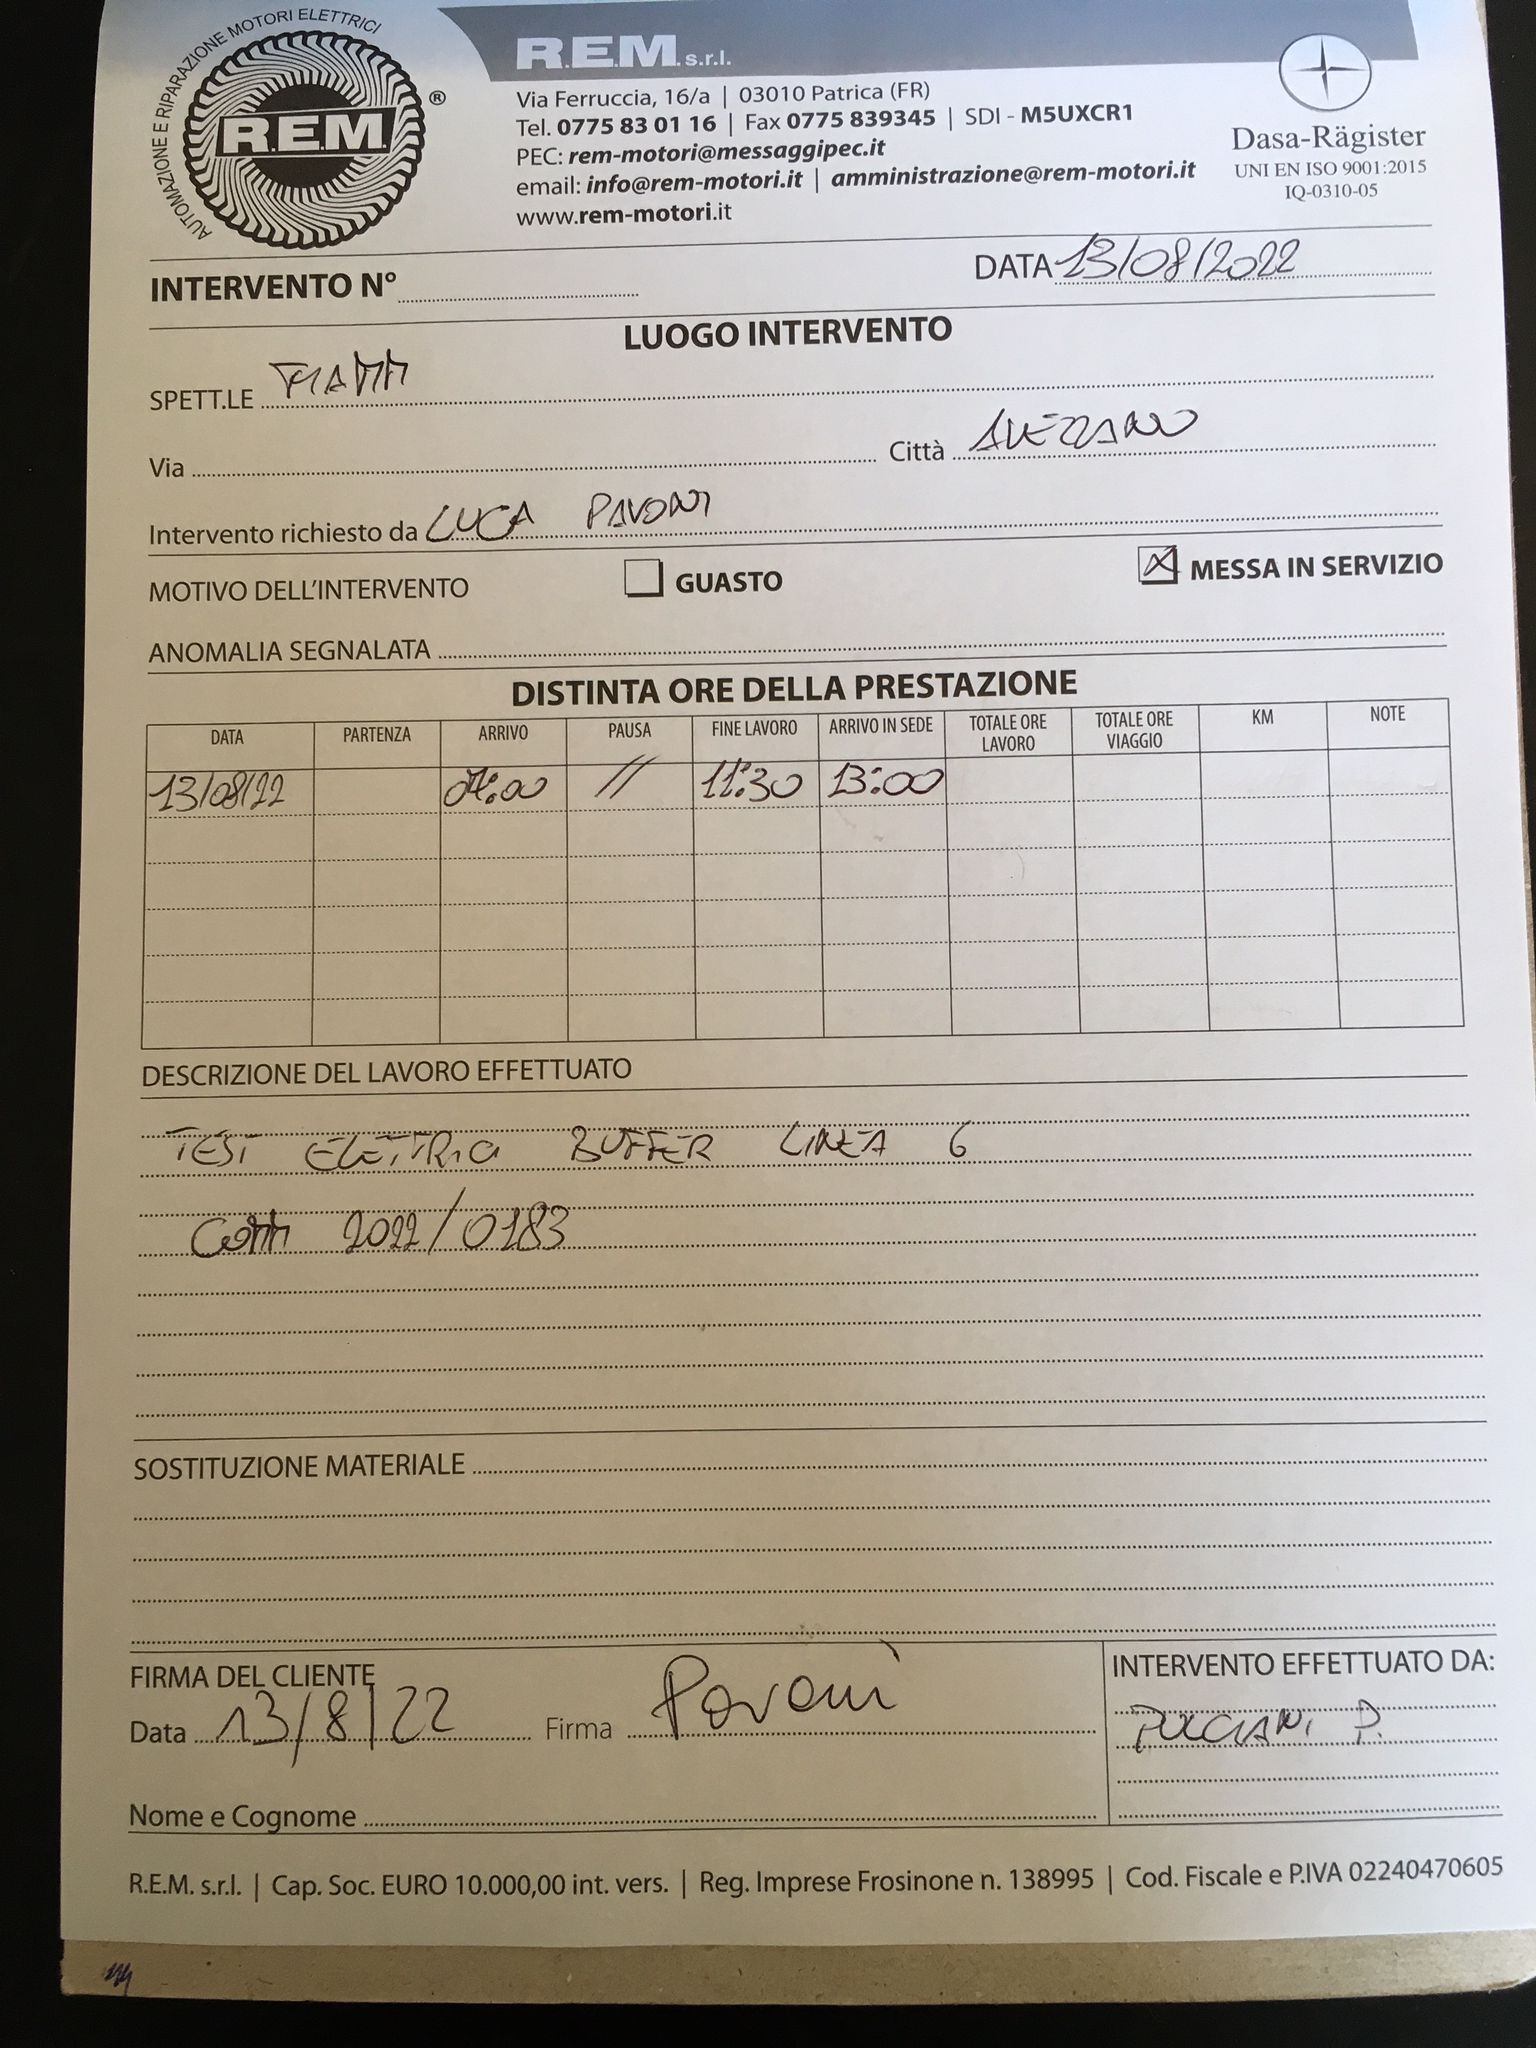 AUTOMAZIONE E RIPARAZIONE MOTORI ELETTRICI
R.E.M. ®
R.E.M. s.r.l.
Via Ferruccia, 16/a | 03010 Patrica (FR)
Tel. 0775 83 01 16 | Fax 0775 839345 | SDI - M5UXCR1
PEC: rem-motori@messaggipec.it
email: info@rem-motori.it | amministrazione@rem-motori.it
www.rem-motori.it
Dasa-Rägister
UNI EN ISO 9001:2015
IQ-0310-05
INTERVENTO N° DATA 13/08/2022
LUOGO INTERVENTO
SPETT.LE FIAMM
Via Città AVEZZANO
Intervento richiesto da LUCA PAVONI
MOTIVO DELL'INTERVENTO GUASTO X MESSA IN SERVIZIO
ANOMALIA SEGNALATA
DISTINTA ORE DELLA PRESTAZIONE
DATA PARTENZA ARRIVO PAUSA FINE LAVORO ARRIVO IN SEDE TOTALE ORE LAVORO TOTALE ORE VIAGGIO KM NOTE
13/08/22 07:00 // 11:30 13:00
DESCRIZIONE DEL LAVORO EFFETTUATO
TEST ELETTRICI BUFFER LINEA 6
COMM 2022/0183
SOSTITUZIONE MATERIALE
FIRMA DEL CLIENTE
Data 13/8/22 Firma Pavoni
Nome e Cognome
INTERVENTO EFFETTUATO DA:
P.
R.E.M. s.r.l. | Cap. Soc. EURO 10.000,00 int. vers. | Reg. Imprese Frosinone n. 138995 | Cod. Fiscale e P.IVA 02240470605